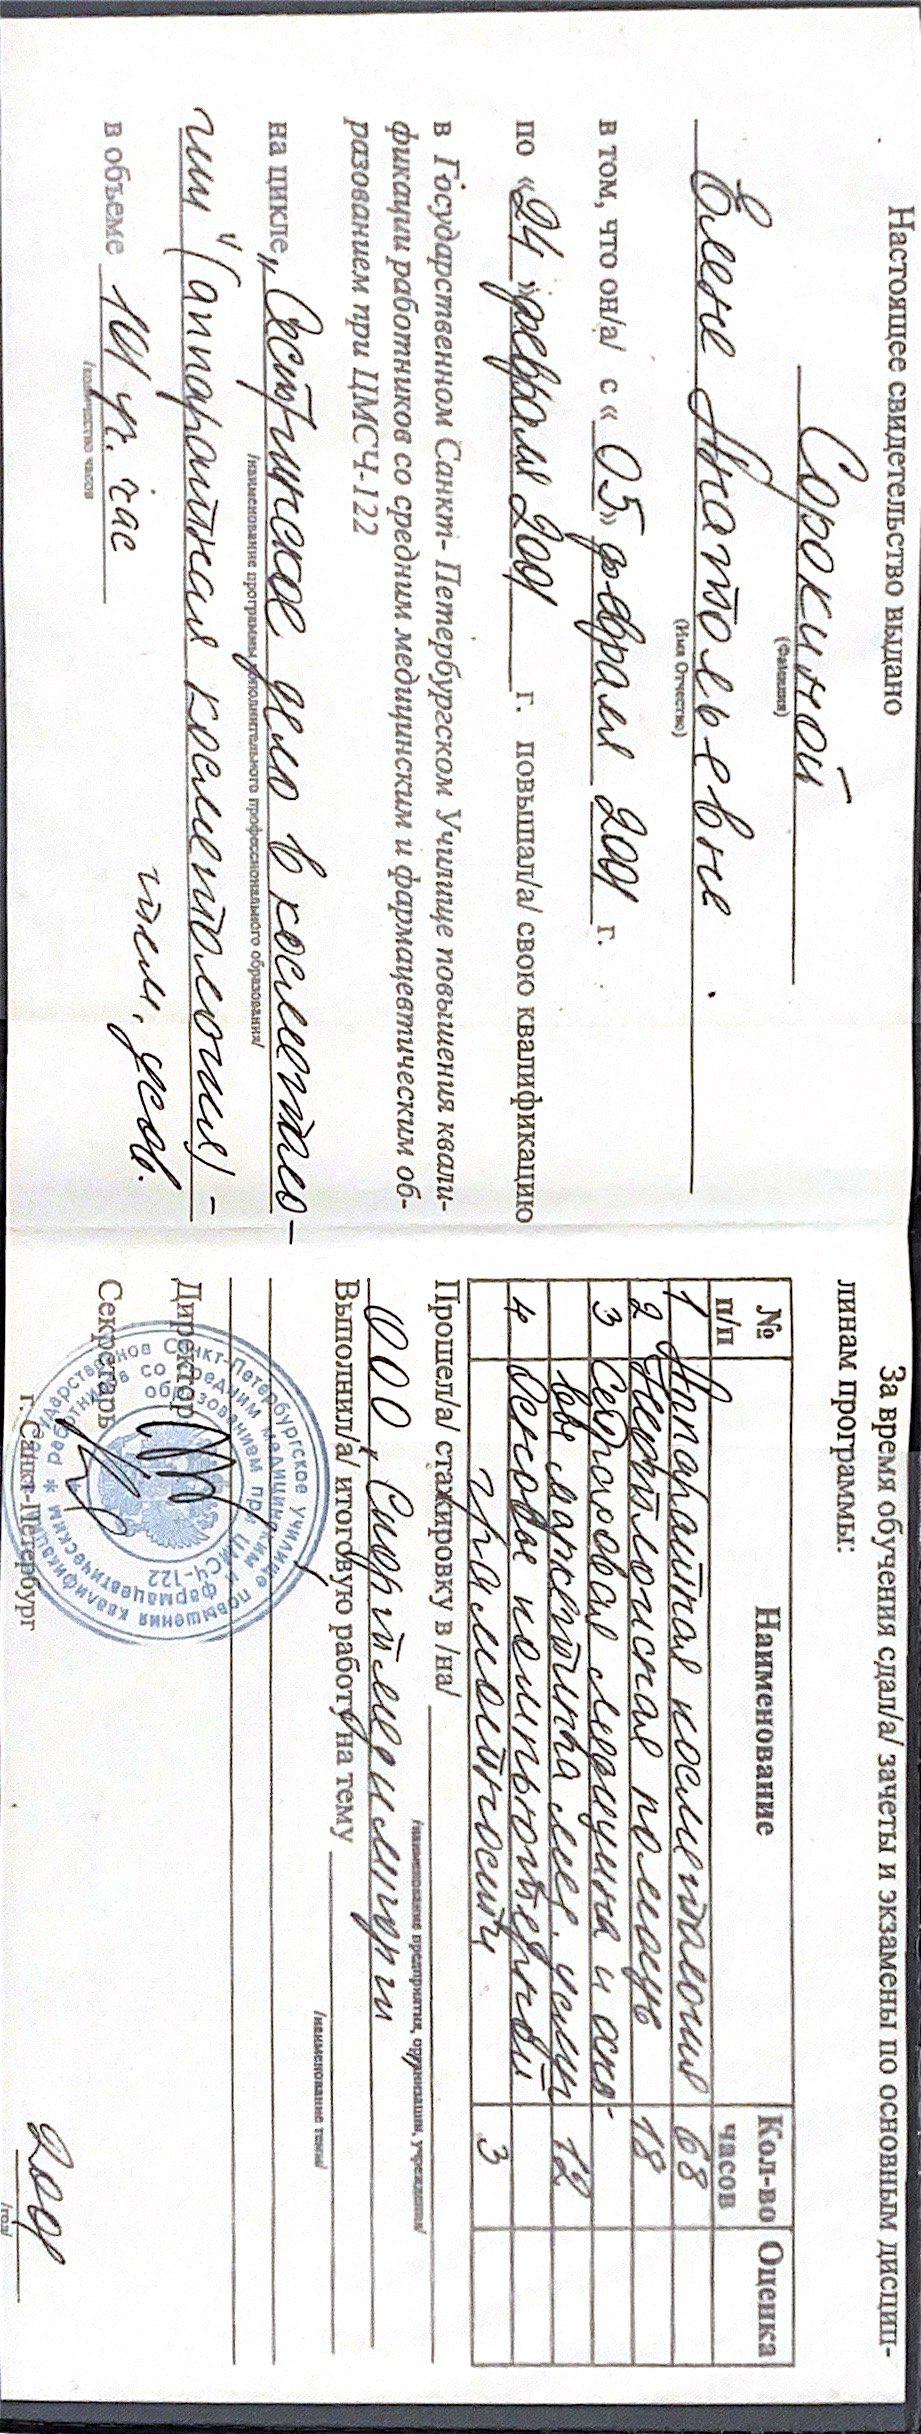 Настоящее свидетельство выдано
Сорокиной
(Фамилия)
Елене Анатольевне
(Имя Отчество)
в том, что он/а/ с «05» февраля 2001 г.
по «24» февраля 2001 г. повышал/а/ свою квалификацию
в Государственном Санкт- Петербургском Училище повышения квали-
фикации работников со средним медицинским и фармацевтическим об-
разованием при ЦМСЧ-122
на цикле „Сестринское дело в косметоло-
/наименование программы дополнительного профессионального образования/
гии" (аппаратная косметология) -
тем. усов.
в объеме 101 уч. час
/количество часов
За время обучения сдал/а/ зачеты и экзамены по основным дисцип-
линам программы:
№ п/п Наименование Кол-во часов Оценка
1 Аппаратная косметология 68
2 Неотложная помощь 18
3 Страховая медицина и осно-
вы маркетинга мед. услуг 12
4 Основы компьютерной
грамотности 3
Прошел/а/ стажировку в /на/
/наименование предприятия, организации, учреждения/
ООО „Спортмедимпорт"
Выполнил/а/ итоговую работу на тему
/наименование темы/
Директор
Секретарь
Государственное Санкт-Петербургское училище повышения квалификации
работников со средним медицинским и фармацевтическим
образованием при ЦМСЧ-122
г. Санкт-Петербург
2001
/год/